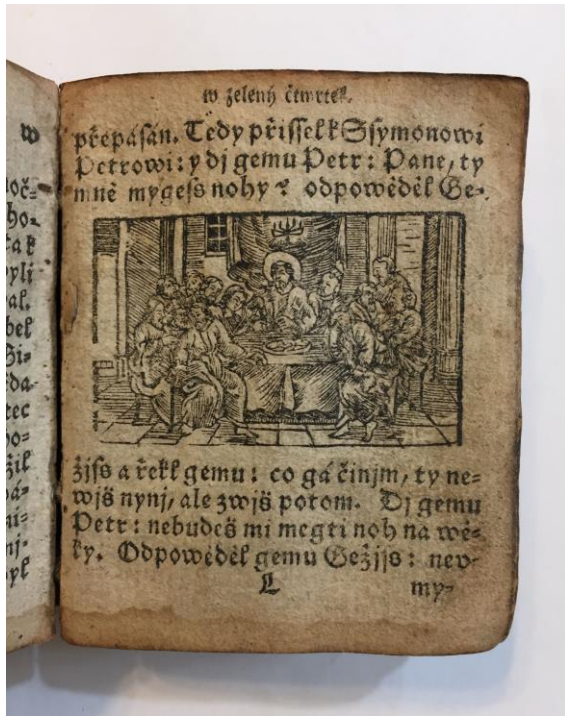 w zelený čtwrtek.
přepásán. Tedy přissel k Ssymonowi
Petrowi: y dj gemu Petr: Pane, ty
mně mygess nohy? odpowěděl Ge-
žjss a řekl gemu: co gá činjm, ty ne=
wjš nynj, ale zwjš potom. Dj gemu
Petr: nebudeš mi megti noh na wě=
ky. Odpowěděl gemu Gežjss: neo=
L
my=
w
oč=
ho=
tak
yli
al.
bel
Si=
da
tec
po=
žil
pá=
ni=
nj=
yl